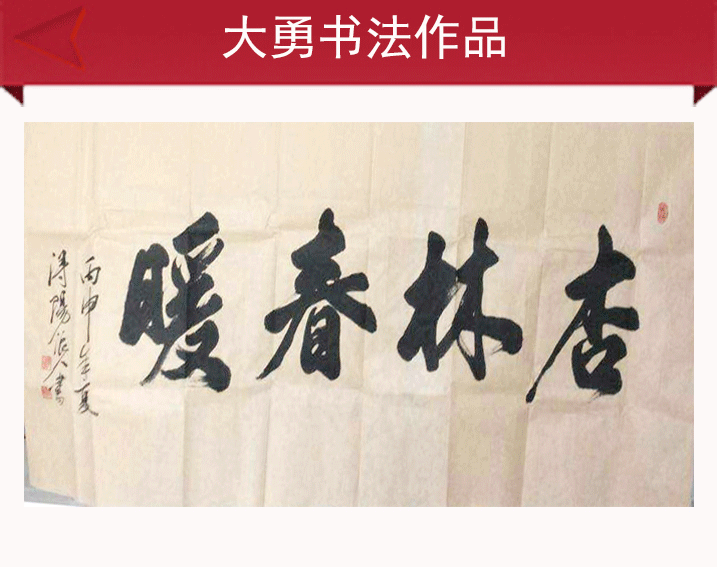 大勇书法作品
杏林春暖
丙申年夏
浔陽張人書